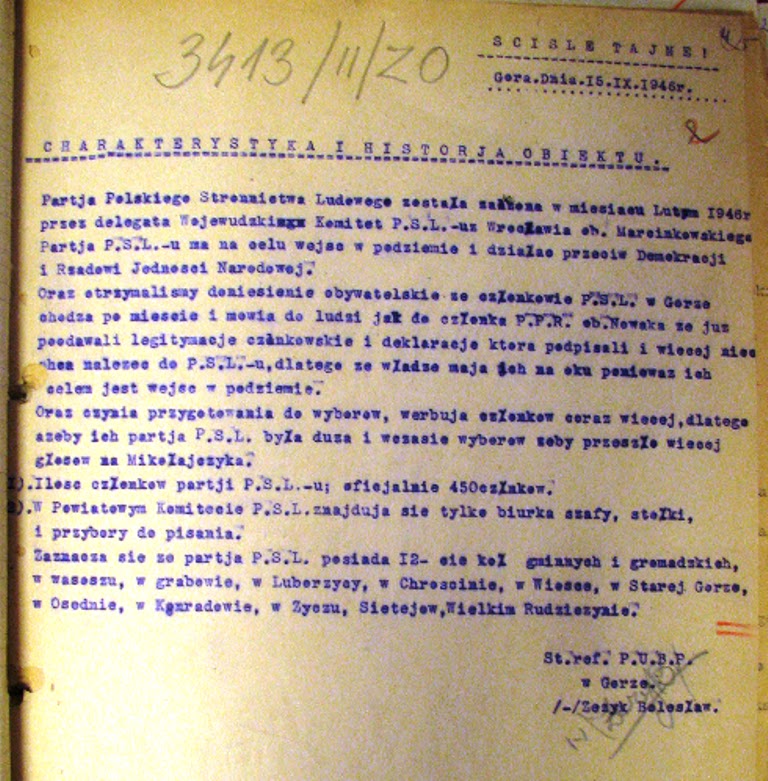 3413/II/ZO
SCISLE TAJNE!
Gora.Dnia.15.IX.1946r.
2
CHARAKTERYSTYKA I HISTORJA OBIEKTU.
Partja Polskiego Stronnictwa Ludowego została założona w miesiacu Lutym 1946r
przez delegata Wojewudzki Komitet P.S.L.-uz Wrocławia ob. Marcinkowskiego
Partja P.S.L.-u ma na celu wejsc w podziemie i działac przeciw Demokracji
i Rzadowi Jednosci Narodowej.
Oraz otrzymalismy doniesienie obywatelskie ze członkowie P.S.L. w Gorze
chodza po miescie i mowia do ludzi jak do członka P.P.R. ob.Nowaka ze juz
poodawali legitymacje człnkowskie i deklaracje ktora podpisali i wiecej nie
chca nalezec do P.S.L.-u,dlatego ze władze maja ich na oku poniewaz ich
celem jest wejsc w podziemie.
Oraz czynia przygotowania do wyborow, werbuja członkow coraz wiecej,dlatego
azeby ich partja P.S.L. była duza i wczasie wyborow zeby przeszło wiecej
głosow na Mikołajczyka.
1).Ilosc członkow partji P.S.L.-u; oficjalnie 450człnkow.
2).W Powiatowym Komitecie P.S.L.znajduja sie tylko biurka szafy, stołki,
i przybory do pisania.
Zaznacza sie ze partja P.S.L. posiada I2- cie koł gminnych i gromadzkich,
w wasoszu, w grabowie, w Luborzycy, w Chroscinie, w Wiosce, w Starej Gorze,
w Osednie, w Konradowie, w Zyczu, Sietejow,Wielkim Rudziczynie.
St.ref. P.U.B.P.
w Gorze.
/-/Zezyk Bolesław.